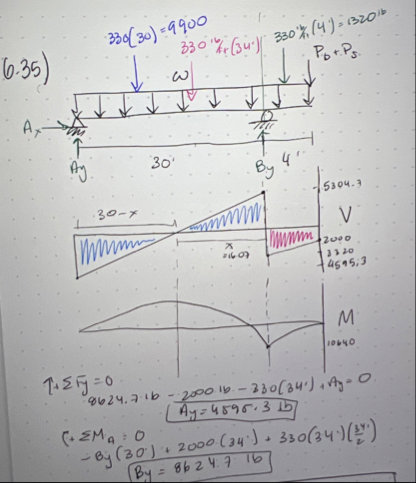 330(30) = 9900
330 lb/ft (4') = 1320 lb
6.35)
330 lb/ft (34')
ω
P_b + P_s
A_x
A_y
30'
B_y 4'
5304.3
30-x
V
x
=16.07
2000
3320
4595.3
M
10640
↑+ΣF_y = 0
8624.7 lb - 2000 lb - 330(34') + A_y = 0
A_y = 4595.3 lb
(+ ΣM_A = 0
-B_y(30') + 2000(34') + 330(34')(34'/2)
B_y = 8624.7 lb